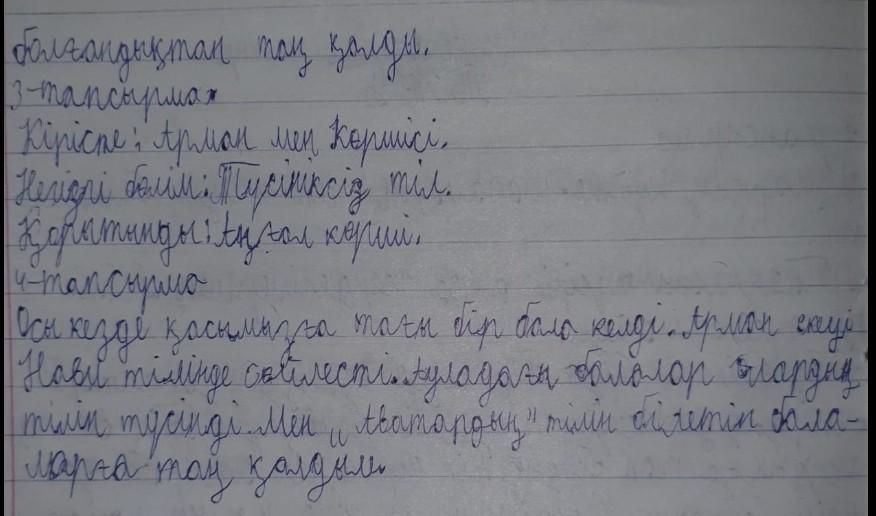 болғандықтан таң қалды.
3-тапсырма
Кіріспе: Арман мен Көршісі.
Негізгі бөлім: Түсініксіз тіл.
Қорытынды: Аңғал көрші.
4-тапсырма
Осы кезде қасымызға тағы бір бала келді. Арман екеуі
Нави тілінде сөйлесті. Ауладағы балалар олардың
тілін түсінді. Мен „Аватардың" тілін білетін бала-
ларға таң қалдым.